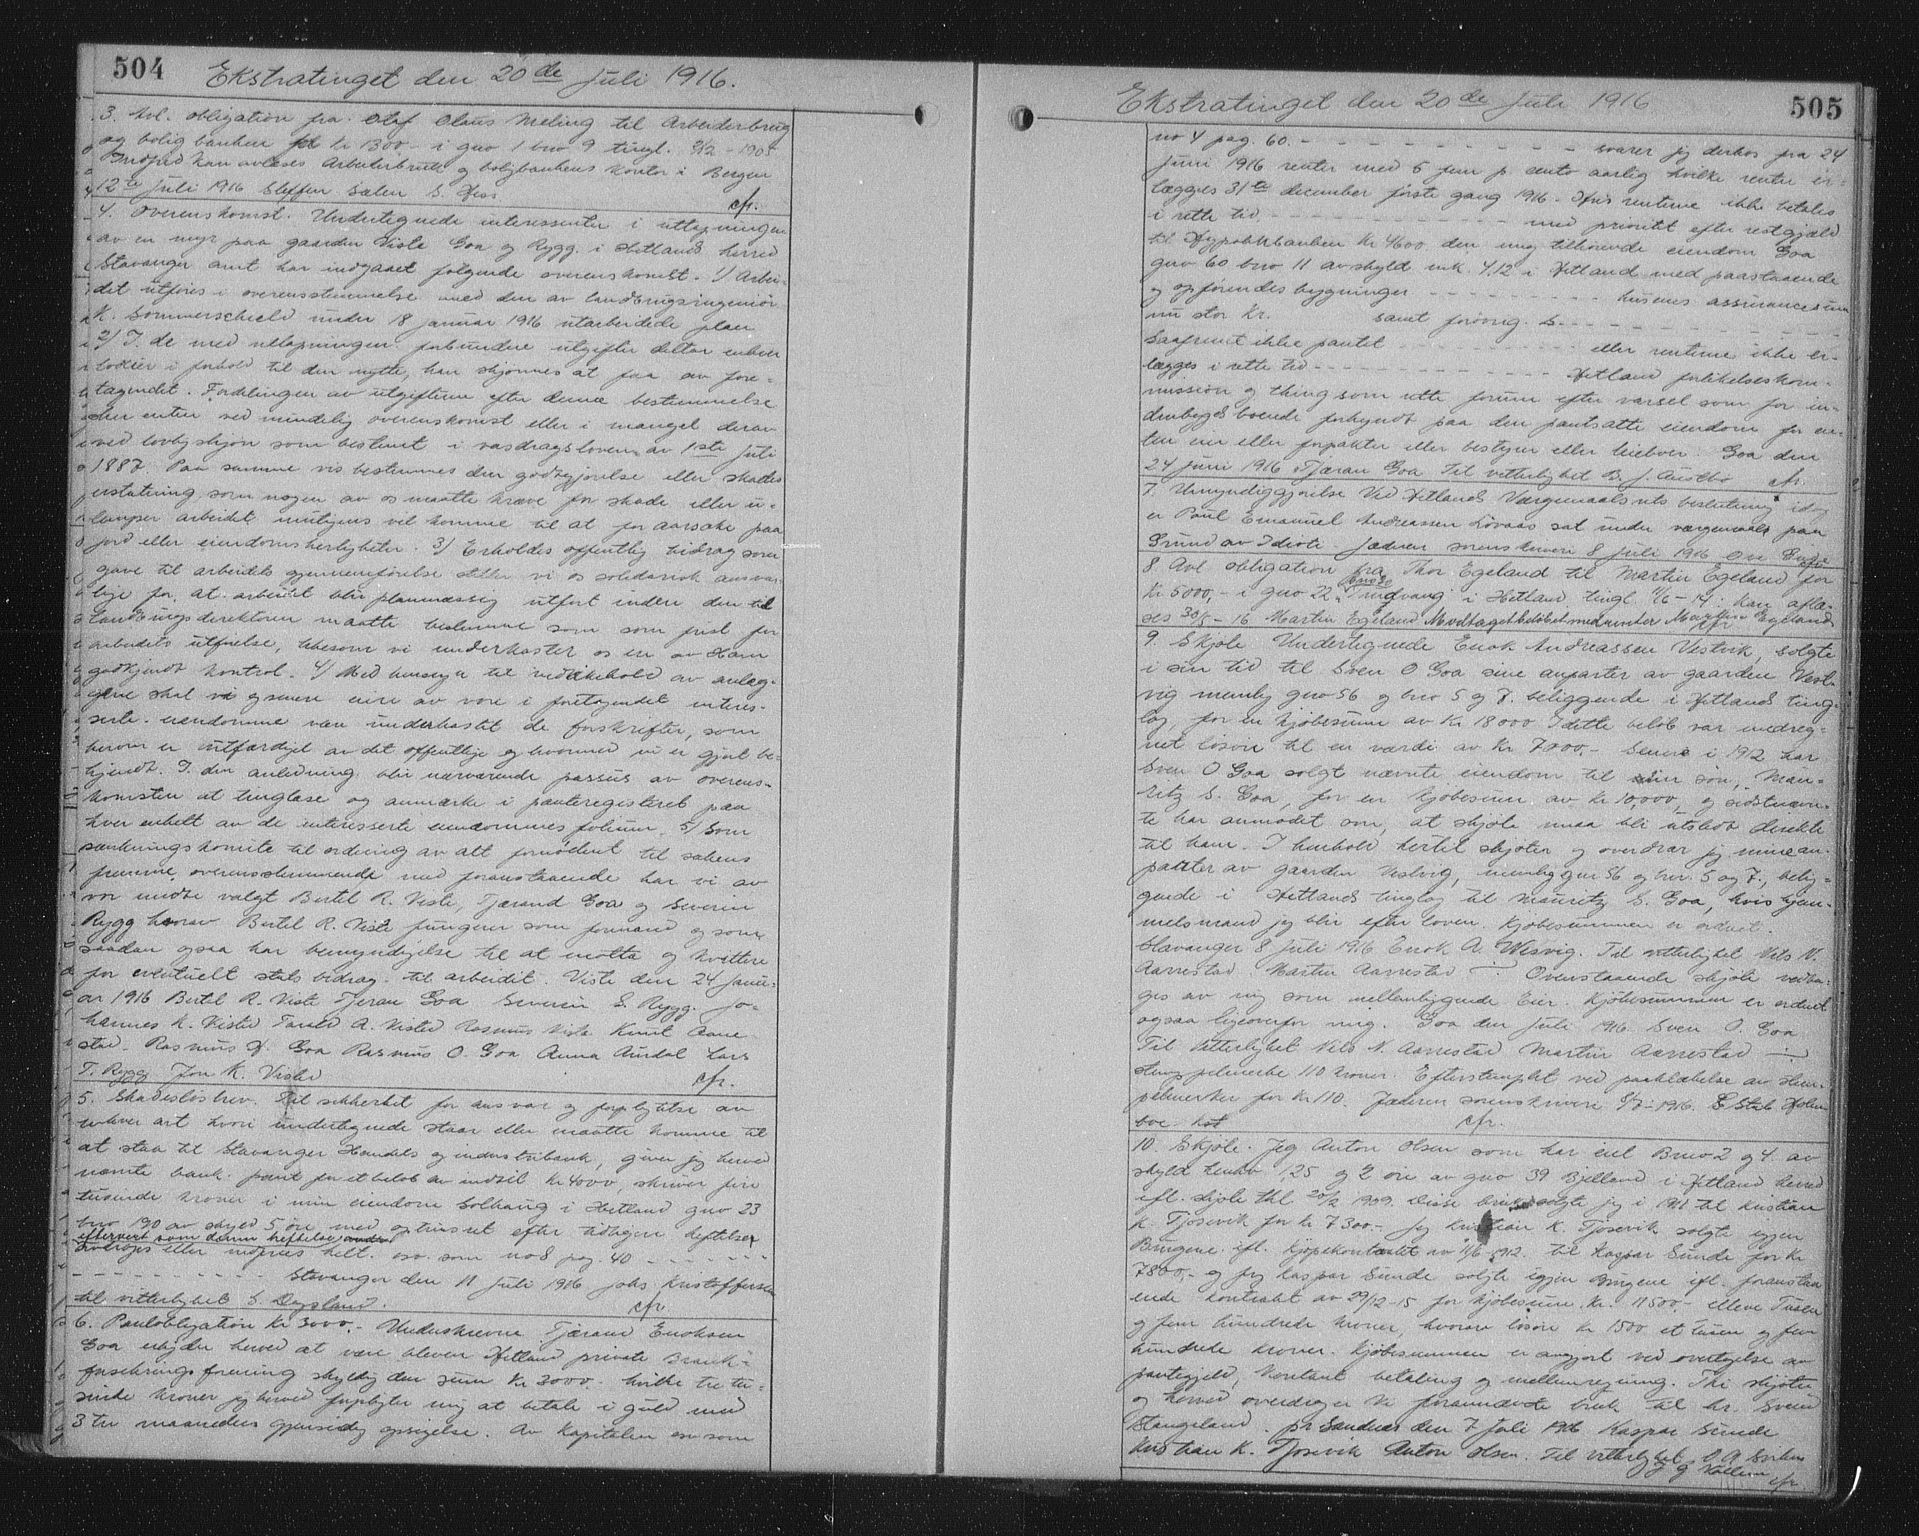 504
Ekstratinget den 20de Juli 1916.
3. Avl. obligation fra Olaf Olaus Meling til Arbeiderbrug
og bolig banken for kr 1300 - i gno 1 bno 9 tingl. 9/2 - 1905
Indford kan avlæses Arbeiderbruk og boligbankens kontor i Bergen
12te Juli 1916 Steffen Sælen S. Hess
cfr.
4. Overenskomst. Undertegnede interessenter i uttapningen
av en myr paa gaarden Viste Goa og Rygg i Hetlands herred
Stavanger amt har indgaaet følgende overenskomst. 1/ Arbei-
det utføres i overensstemmelse med den av landbrugsingeniør
K. Sommerschield under 18 januar 1916 utarbeidede plan
2/ I de med uttapningen forbundne utgifter deltar enhver
lodeier i forhold til den nytte, han skjønnes at faa av fore-
tagendet. Fordelingen av utgifterne efter denne bestemmelse
sker enten ved mindelig overenskomst eller i mangel derav
ved lovlig skjøn som bestemt i vasdragsloven av 1ste Juli
1887. Paa samme vis bestemmes den godtgjørelse eller skades
erstatning som nogen av os maatte kræve for skade eller u-
lemper arbeidet mutigens vil komme til at for aarsake paa
jord eller eiendomsherligheter. 3/ Erholdes offentlig bidrag som
gave til arbeidets gjennemførelse stiller vi os solidarisk ansvar
lige for, at arbeidet blir planmæssig utført inden den til
landbrugsdirektøren maatte bestemme som som frist for
arbeidets utførelse, likesom vi underkaster os en av ham
godkjendt kontrol. 4/ Med hensyn til vedlikehold av anlæg-
gene skal vi og senere eiere av vore i foretagendet interes-
serte eiendomme være underkastet de forskrifter, som
herom er utfærdiget av det offentlige og hvormed vi er gjort be-
kjendt. I den anledning blir nærværende passus av overens-
komsten at tinglæse og anmærke i panteregisteret paa
hver enkelt av de interesserte eiendommes folium. 5/ Som
sænkningskomite til ordning av alt fornødent til sakens
fremme, overensstemmende med foranstaaende har vi av
vor midte valgt Bertel R. Viste, Tjærand Goa og Severin
Rygg hvorav Bertel R. Viste fungerer som formand og som
saadan ogsaa har bemyndigelse til at motta og kvittere
for eventuelt stats bidrag til arbeidet. Viste den 24 Janu-
ar 1916 Bertel R. Viste Tjeran Goa Severin S. Rygg. Jo-
hannes K. Visted Tarald A. Visted Rasmus Viste Knut Aare
stad. Rasmus H. Goa Rasmus O. Goa Anna Aurdal Lars
T. Rygg Jon K. Visted
cfr.
5. Skadesløsbrev. Til sikkerhet for ansvar og forpligtelse av
enhver art hvori undertegnede staar eller maatte komme til
at staa til Stavanger Handels og industribank, giver jeg herved
nævnte bank pant for et beløb av indtil kr 4000, skriver fire
tusende kroner i min eiendom Solhaug i Hetland gno 23
bno 190 av skyld 5 øre med optrinsret efter tidligere heftelser
eftervert som denne heftelse
avdrages eller indfries helt. osv. som no 8 pag. 40 - - - -
- - - - - - - - - Stavanger den 11 Juli 1916 Johs. Kristoffersen
til vitterlighet S. Døgsland.
cfr
6. Pantobligation kr 3000.- Underskrevne Tjærand Enoksen
Goa erkjder herved at være bleven Hetland private Brand-
forsikrings forening skyldig den sum kr 3000.- hvilke tre tu-
sinde kroner jeg herved forpligter mig at betale i guld med
3 tre maaneders gjensidig opsigelse. Av kapitalen osv som
505
Ekstratinget den 20de Juli 1916
no 4 pag. 60. - - - - - - - - - - svarer jeg derhos fra 24
Juni 1916 renter med 5 fem p. cento aarlig hvilke renter er-
lægges 31te december første gang 1916. Hvis renterne ikke betales
i rette tid - - - - - - - - - - med prioritet efter restgjæld
til Hypotekbanken kr 4600 den mig tilhørende eiendom Goa
gno 60 bno 11 av skyld mk. 4,12 i Hetland med paastaaende
og opførendes bygninger - - - - - - - - husenes assurancesum
nu stor kr. samt forøvrig. S. - - - - - - - - -
Saafremt ikke pantet - - - - - - - - eller renterne ikke er-
lægges i rette tid - - - - - - - - - - Hetland forlikelseskom-
mission og thing som rette forum efter varsel som for in-
denbygds boende forkyndt paa den pantsatte eiendom for en-
ten eier eller forpakter eller bestyrer eller leieboer. Goa den
24 juni 1916 Tjæran Goa Til vitterlighet B. J. Austbø
cfr.
7. Umyndiggjørelse Ved Hetlands Værgemaalsrets beslutning idag
er Paul Emanuel Andreassen Lövaas sat under værgemaal paa
Grund av Idioti. Jæderen sorenskriveri 8 Juli 1916
cfr
8. Avl obligation fra Thor Egeland til Martin Egeland for
kr 5000,- i gno 22 i Hetland tingl. 11/6 - 14: kan aflæ-
ses 30/5 - 16 Martin Egeland Modtaget beløbet medunder Martin Egeland
cfr
9. Skjøte Undertegnede Enok Andreassen Vestvik, solgte
i sin tid til Sven O Goa sine anparter av gaarden Vest-
vig nemlig gno 56 og bno 5 og 7. beliggende i Hetlands ting-
lag for en kjøbesum av kr 18000 I dette beløb var medreg-
net løsøre til en værdi av kr 7000.- Senere i 1912 har
Sven O Goa solgt nævnte eiendom til sin søn, Mau-
ritz S. Goa, for en kjøbesum av kr 10,000, og sidstnævn-
te har anmodet om, at skjøte maa bli utstedt direkte
til ham. I henhold hertil skjøter og overdrar jeg mine an-
parter av gaarden Vestvig, nemlig gno 56 og bno. 5 og 7., belig-
gende i Hetlands tinglag til Mauritz S. Goa, hvis hjem-
melsmand jeg blir efter loven. Kjøbesummen er ordnet.
Stavanger 8 Juli 1916 Enok A. Wesvig. Til vitterlighet Nils N.
Aarrestad Martin Aarrestad — Ovenstaaende skjøte vedta-
ges av mig som mellemliggende Eier. Kjøbesummen er ordnet
ogsaa ligeoverfor mig. Goa den Juli 1916. Sven O. Goa
Til vitterlighet Nils N. Aarrestad Martin Aarrestad —
Stempelmerke 110 kroner. Efterstemplet ved paaklæbelse av stem-
pelmerker for kr 110. Jæderen sorenskriveri 8/7 - 1916. E Stub Holm
boe kst
cfr.
10. Skjøte. Jeg Anton Olsen som har eiet Bno 2 og 4 av
skyld henhv 1,25 og 2 øre av gno 39 Bjelland i Hetland herred
efl. skjøte thl 20/2 1909. Disse bruk solgte jeg i 1911 til Kristian
K. Tjosevik for kr 7300.- Jeg Kristian K. Tjosevik solgte igjen
Brugene. ifl. kjøpekontrakt av 11/6 - 1912. til Kaspar Sunde for kr
7800,- og Jeg Kaspar Sunde solgte igjen Brugene ifl. foranstaa
ende kontrakt av 29/12 - 15 for kjøbesum. kr. 11500,- elleve Tusen
og fem hundrede kroner, hvorav løsøre kr 1500 et tusen og fem
hundrede kroner. Kjøbesummen er avgjort ved overtagelse av
pantegjeld, kontant betaling og mellemregning. Thi skjøter
og herved overdrager vi forannævnte bruk til hr. Svend
Stangeland. pr Sandnes den 7 Juli 1916 Kaspar Sunde
Kristian K. Tjosevik Anton Olsen. Til vitterlighet
cfr